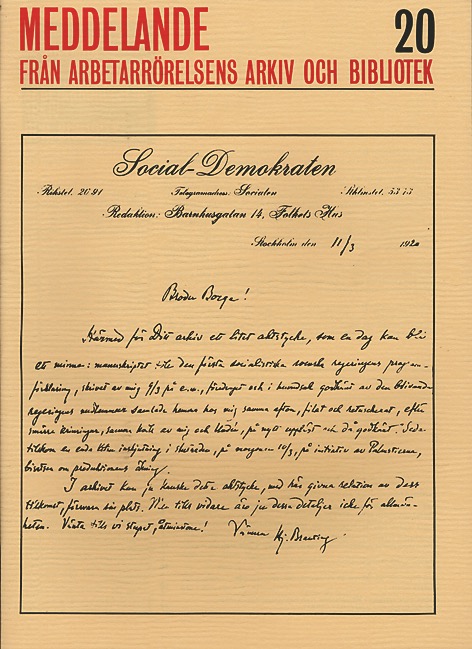 MEDDELANDE 20
FRÅN ARBETARRÖRELSENS ARKIV OCH BIBLIOTEK
Social-Demokraten
Rikstel. 2691 Telegramadress. Socialen Allm. tel. 53 75
Redaktion: Barnhusgatan 14, Folkets Hus
Stockholm den 11/3 1920
Broder Borge!
Härmed för Ditt arkiv ett litet aktstycke, som en dag kan bli
ett minne: manuskriptet till den första socialistiska svenska regeringens program-
förklaring, skrivet av mig 9/3 på e.m., föredraget och i huvudsak godkänt av den blivande
regeringens medlemmar samlade hemma hos mig samma afton, filat och
smärre ändringar, samma av mig och på nytt uppläst och då godkänt. Seder-
tillkom en enda liten inskjutning i på morgonen 10/3, på initiativ av Palmstierna,
om produktionens ökning.
I arkivet kan ju kanske detta aktstycke, med här givna relation av dess
tillkomst, försvara sin plats. Men tills vidare äro ju dessa detaljer icke för allmän-
heten. Vänta tills vi stupat, åtminstone!
Vännen Hj. Branting.